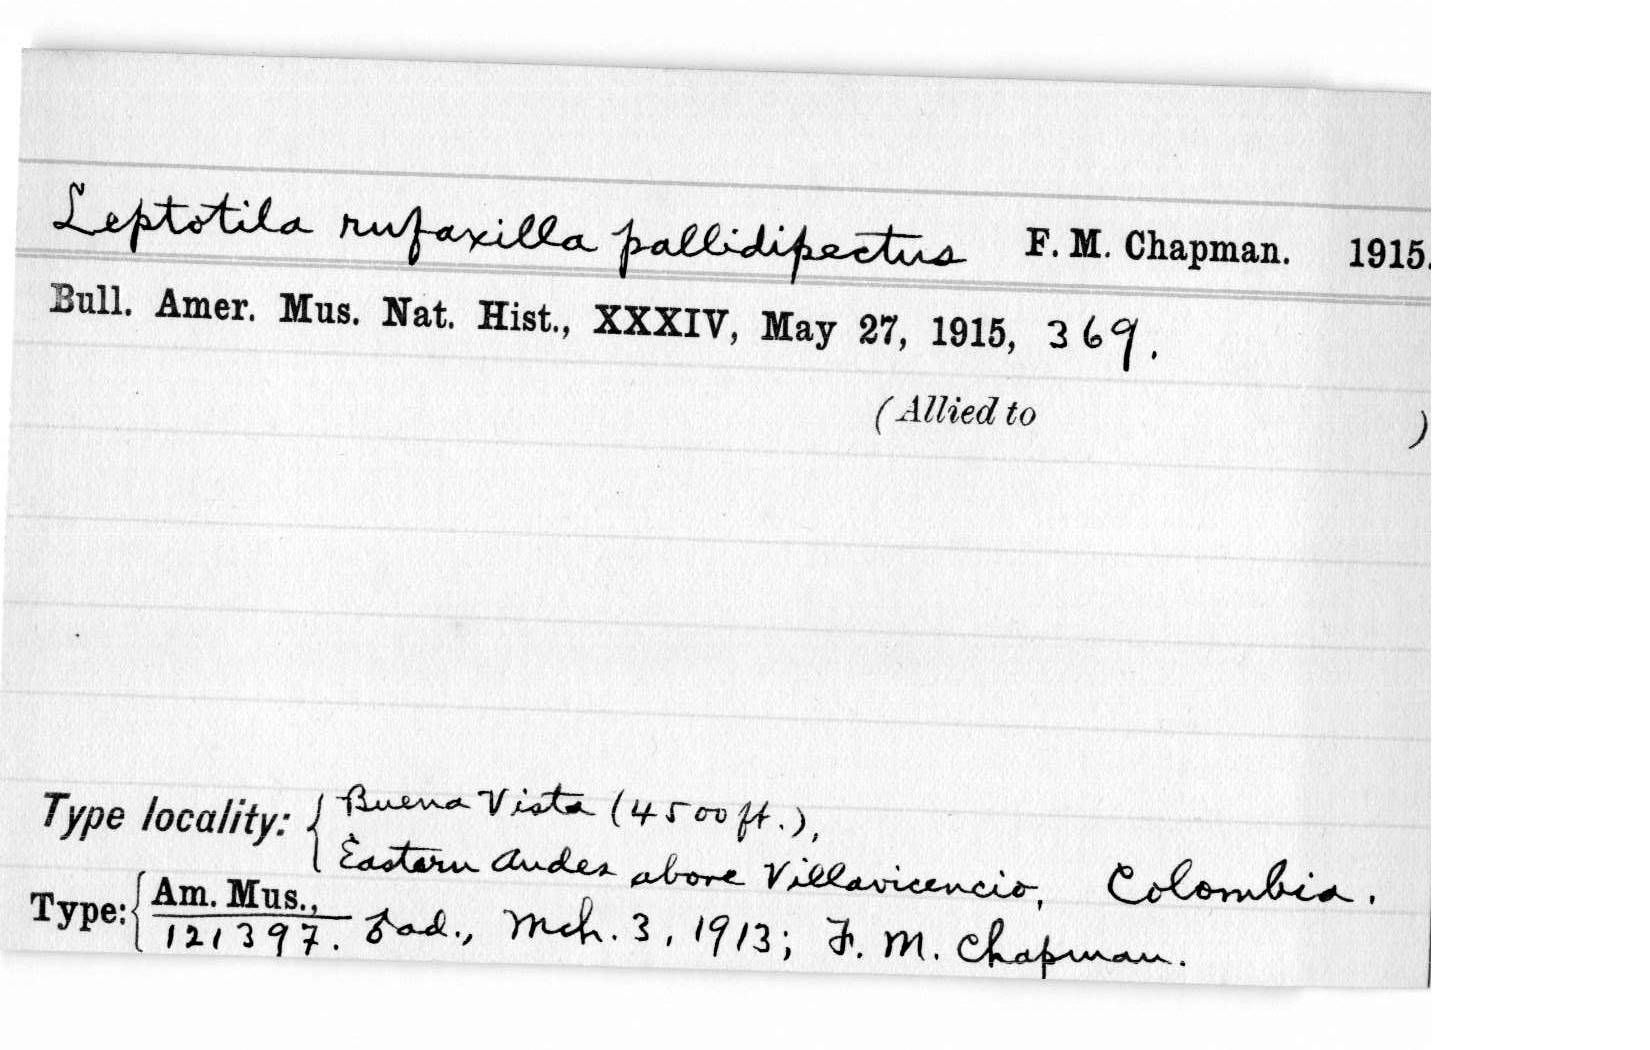 Leptotila rufaxilla pallidipectus F. M. Chapman. 1915.
Bull. Amer. Mus. Nat. Hist., XXXIV, May 27, 1915, 369.
(Allied to )
Type locality: { Buena Vista (4500 ft.),
Eastern Andes above Villavicencio, Colombia.
Type: { Am. Mus.,
121397. ad., Mch. 3, 1913; F. M. Chapman.